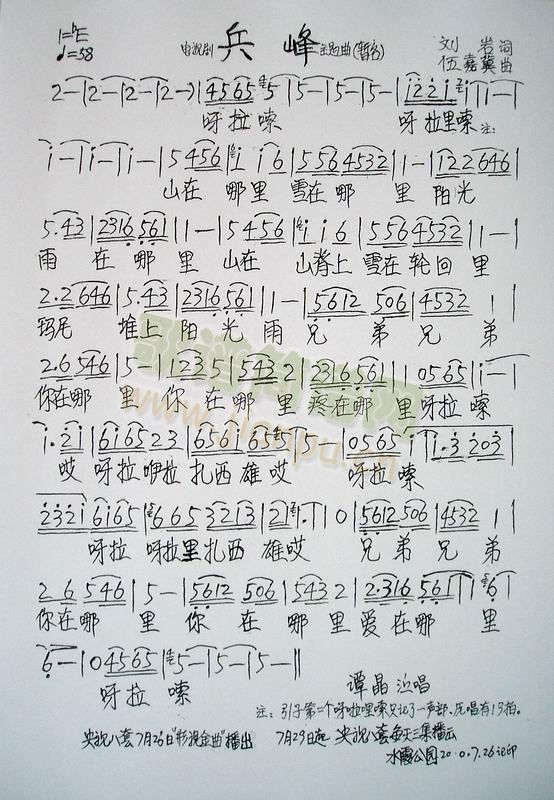 1=♭E
♩=58
电视剧 兵 峰 主题曲(暂名)
刘 岩 词
伍嘉冀 曲
2-|2-|2-|2-)|4565 5|5-|5-|5-|i22i i|i-|
呀拉嗦 呀拉里嗦 注:
i-|i-|i-|5 456|i i6|556 4532|1-|122646|
山在 哪里 雪在哪 里 阳光
5.43|2316 561|1-|5 456|i i6|556 4532|1-|
雨 在 哪 里 山在 山脊上 雪在轮回 里
2.2646|5.43|2316 561|1-|5612 506|4532 1|
玛尼 堆上 阳光 雨 兄 弟 兄 弟
2.6546|5-|123 5|543 2|2316 561|1 0565|i-|
你在哪 里 你 在 哪 里 疼在哪 里呀拉 嗦
i.2i|6i65 23|65i 6i|65 5-|0565 i|i.3 203|
哎 呀拉咿拉 扎西 雄哎 呀拉 嗦
232i 6i65|665 3213|21 1.|1 0|5612 506|4532 1|
呀拉 呀拉里扎西 雄哎 兄 弟 兄 弟
2 6 546|5-|5612 506|543 2|2.316 561|6|
你在哪 里 你 在 哪 里 爱在哪 里
6-|0 4565|5-|5-|5-‖
呀拉 嗦
谭晶 演唱
注:引子第二个呀拉哩嗦只记了一声部、原唱有13拍。
央视八套7月26日"影视金曲"播出 7月29日起 央视八套每天三集播出
水霞公园2010.7.26记印